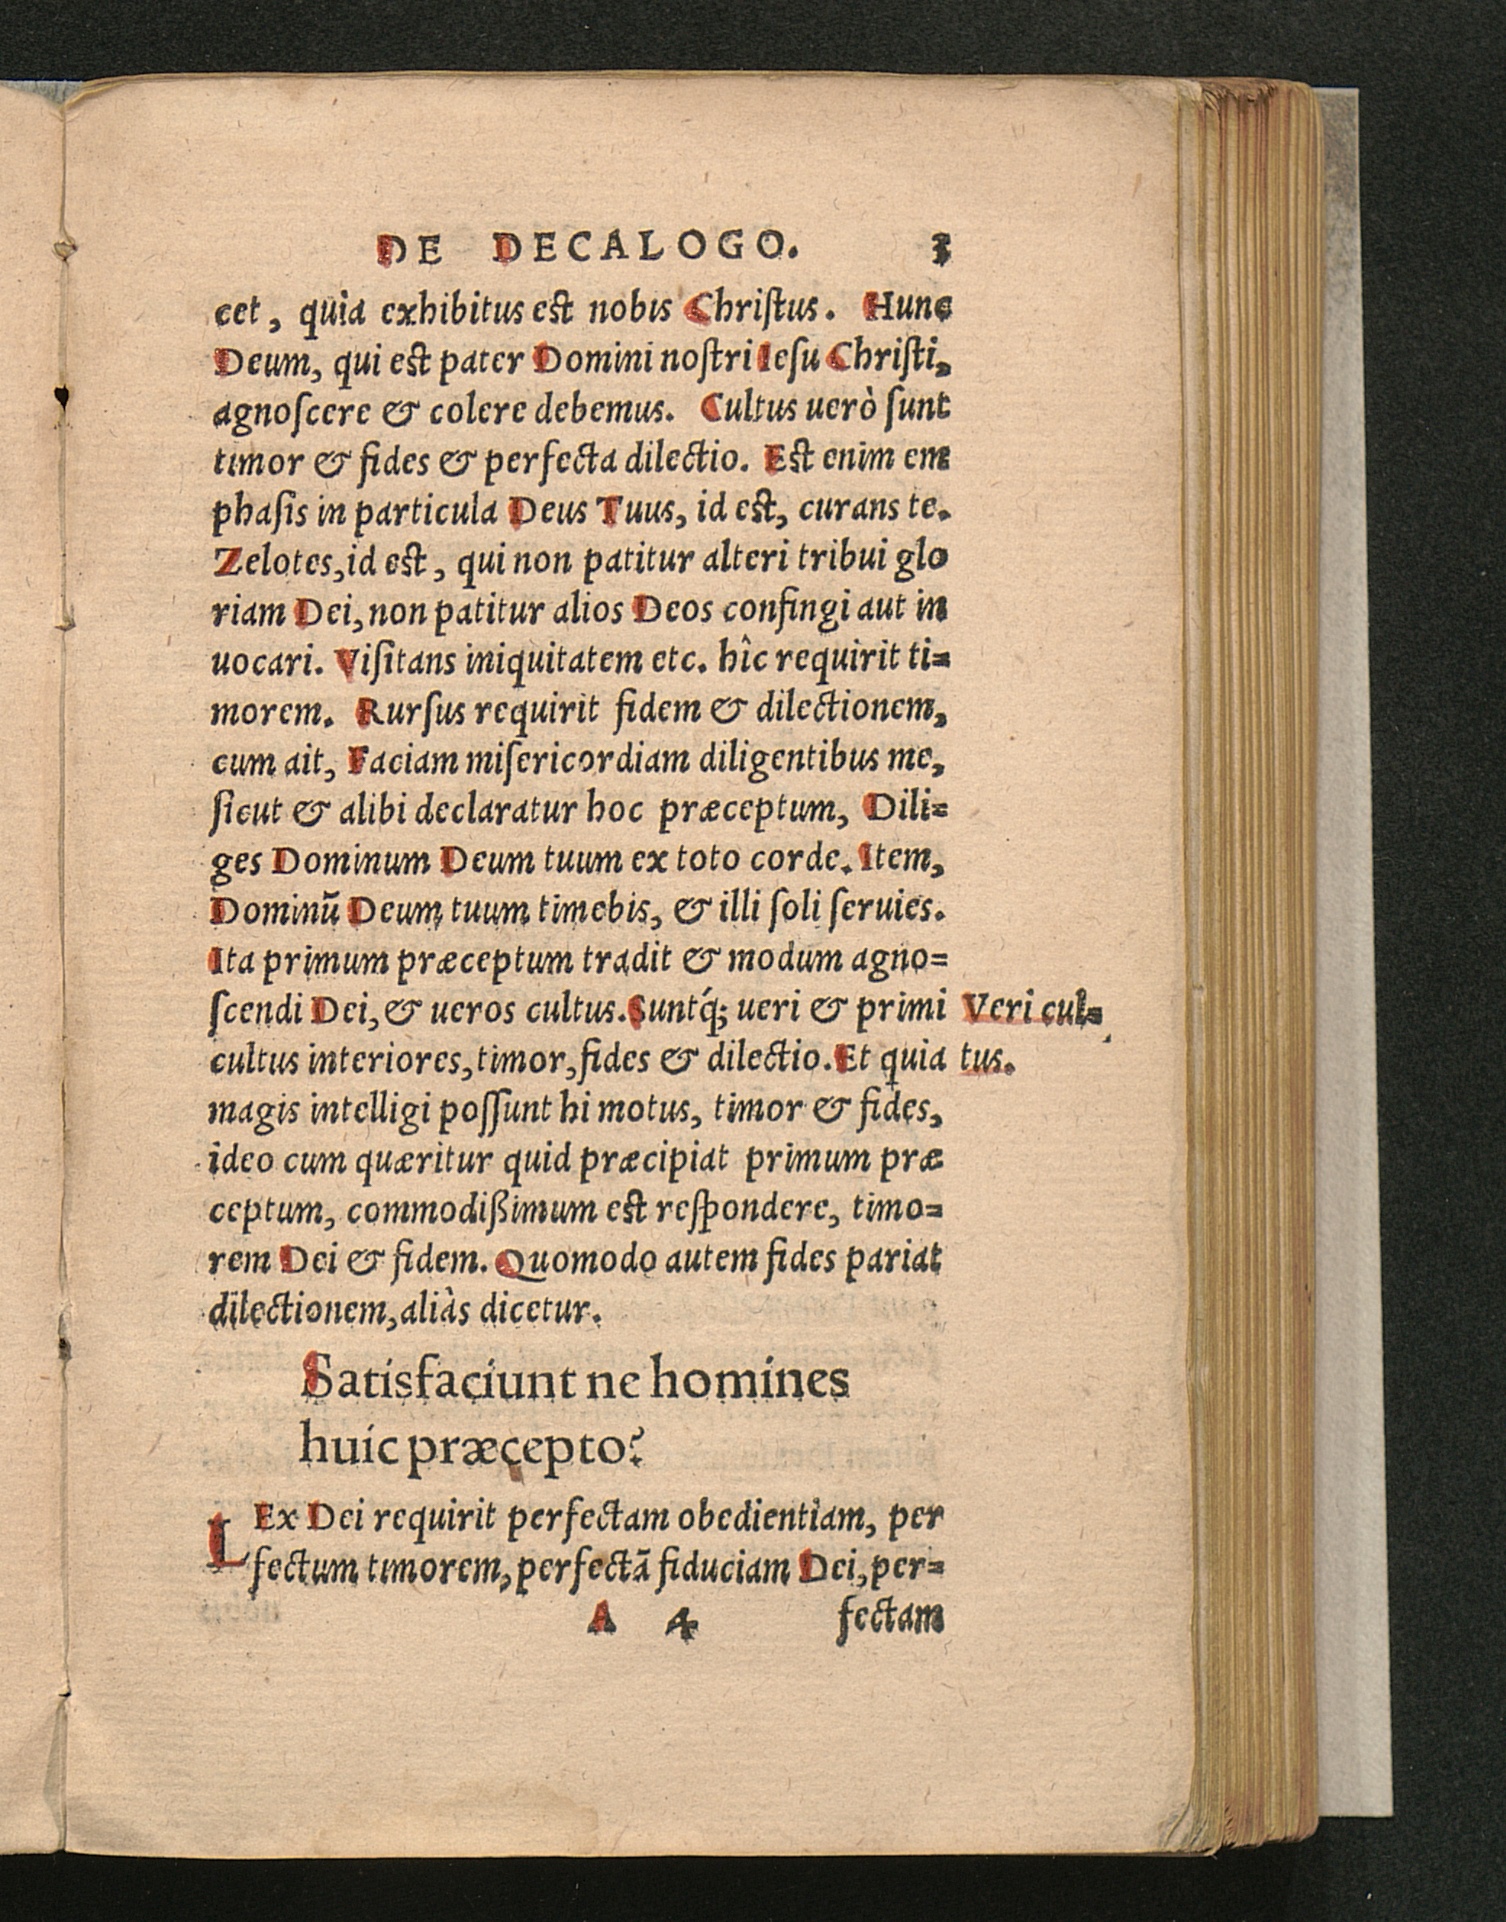 DE DECALOGO. 3
cet, quia exhibitus est nobis Chriſtus. Hunc
Deum, qui est pater Domini noſtri Ieſu Chriſti,
agnoſcere & colere debemus. Cultus uerò ſunt
timor & fides & perfecta dilectio. Est enim em
phaſis in particula Deus Tuus, id est, curans te.
Zelotes, id est, qui non patitur alteri tribui glo
riam Dei, non patitur alios Deos confingi aut in
uocari. Viſitans iniquitatem etc. hîc requirit ti=
morem. Rurſus requirit fidem & dilectionem,
cum ait, Faciam miſericordiam diligentibus me,
ſicut & alibi declaratur hoc præceptum, Dili=
ges Dominum Deum tuum ex toto corde. Item,
Dominū Deum tuum timebis, & illi ſoli ſeruies.
Ita primum præceptum tradit & modum agno=
ſcendi Dei, & ueros cultus. Suntq́; ueri & primi
cultus interiores, timor, fides & dilectio. Et quia
magis intelligi poſſunt hi motus, timor & fides,
ideo cum quæritur quid præcipiat primum præ
ceptum, commodißimum est reſpondere, timo=
rem Dei & fidem. Quomodo autem fides pariat
dilectionem, aliàs dicetur.
Veri cul=
tus.
Satisfaciunt ne homines
huic præcepto?
LEx Dei requirit perfectam obedientiam, per
fectum timorem, perfectā fiduciam Dei, per=
A 4 fectam